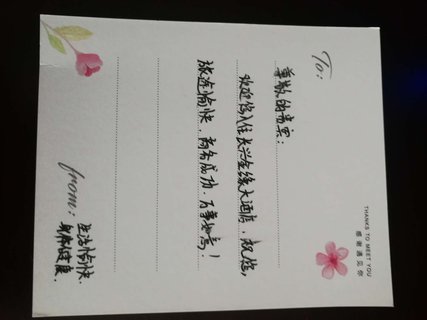 THANKS TO MEET YOU
感谢遇见你
To:
尊敬的贵宾:
欢迎您入住长兴金缘大酒店,祝您,
旅途愉快,商务成功,万事如意!
from: 生活愉快.
身体健康.